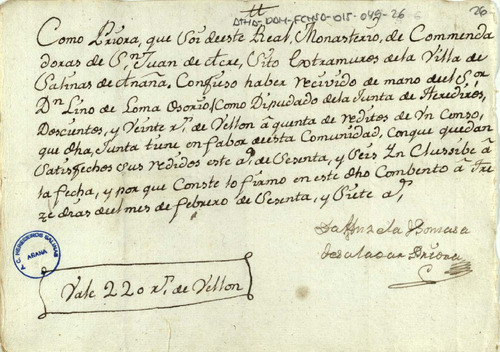 ATHA-DAH-FCHSO-015-049-26
26
Como Priora, que Soi de este Real, Monasterio, de Commenda
doras de Sn. Juan de Acre, Sito Extramures de la Villa de
Salinas de Añana, Confieso haber recivido de mano del Sor.
Dn. Lino de Loma Osorio, Como Diputado de la Junta de Heredires,
Doscientos, y Veinte rs. de Vellon à quenta de reditos de Un Censo,
que dha, Junta tiene en fabor de esta Comunidad, Con que quedan
Satisfechos sus redidos este año de Sesenta, y Seis In Clussibe à
la fecha, y por que Conste lo firmo en este dho Combento à Tre
ze dias del mes de febrero de Sesenta, y Siete as.
de Salazar Priora
Vale 220 rs. de Vellon
A.C. HEREDEROS SALINAS
AÑANA